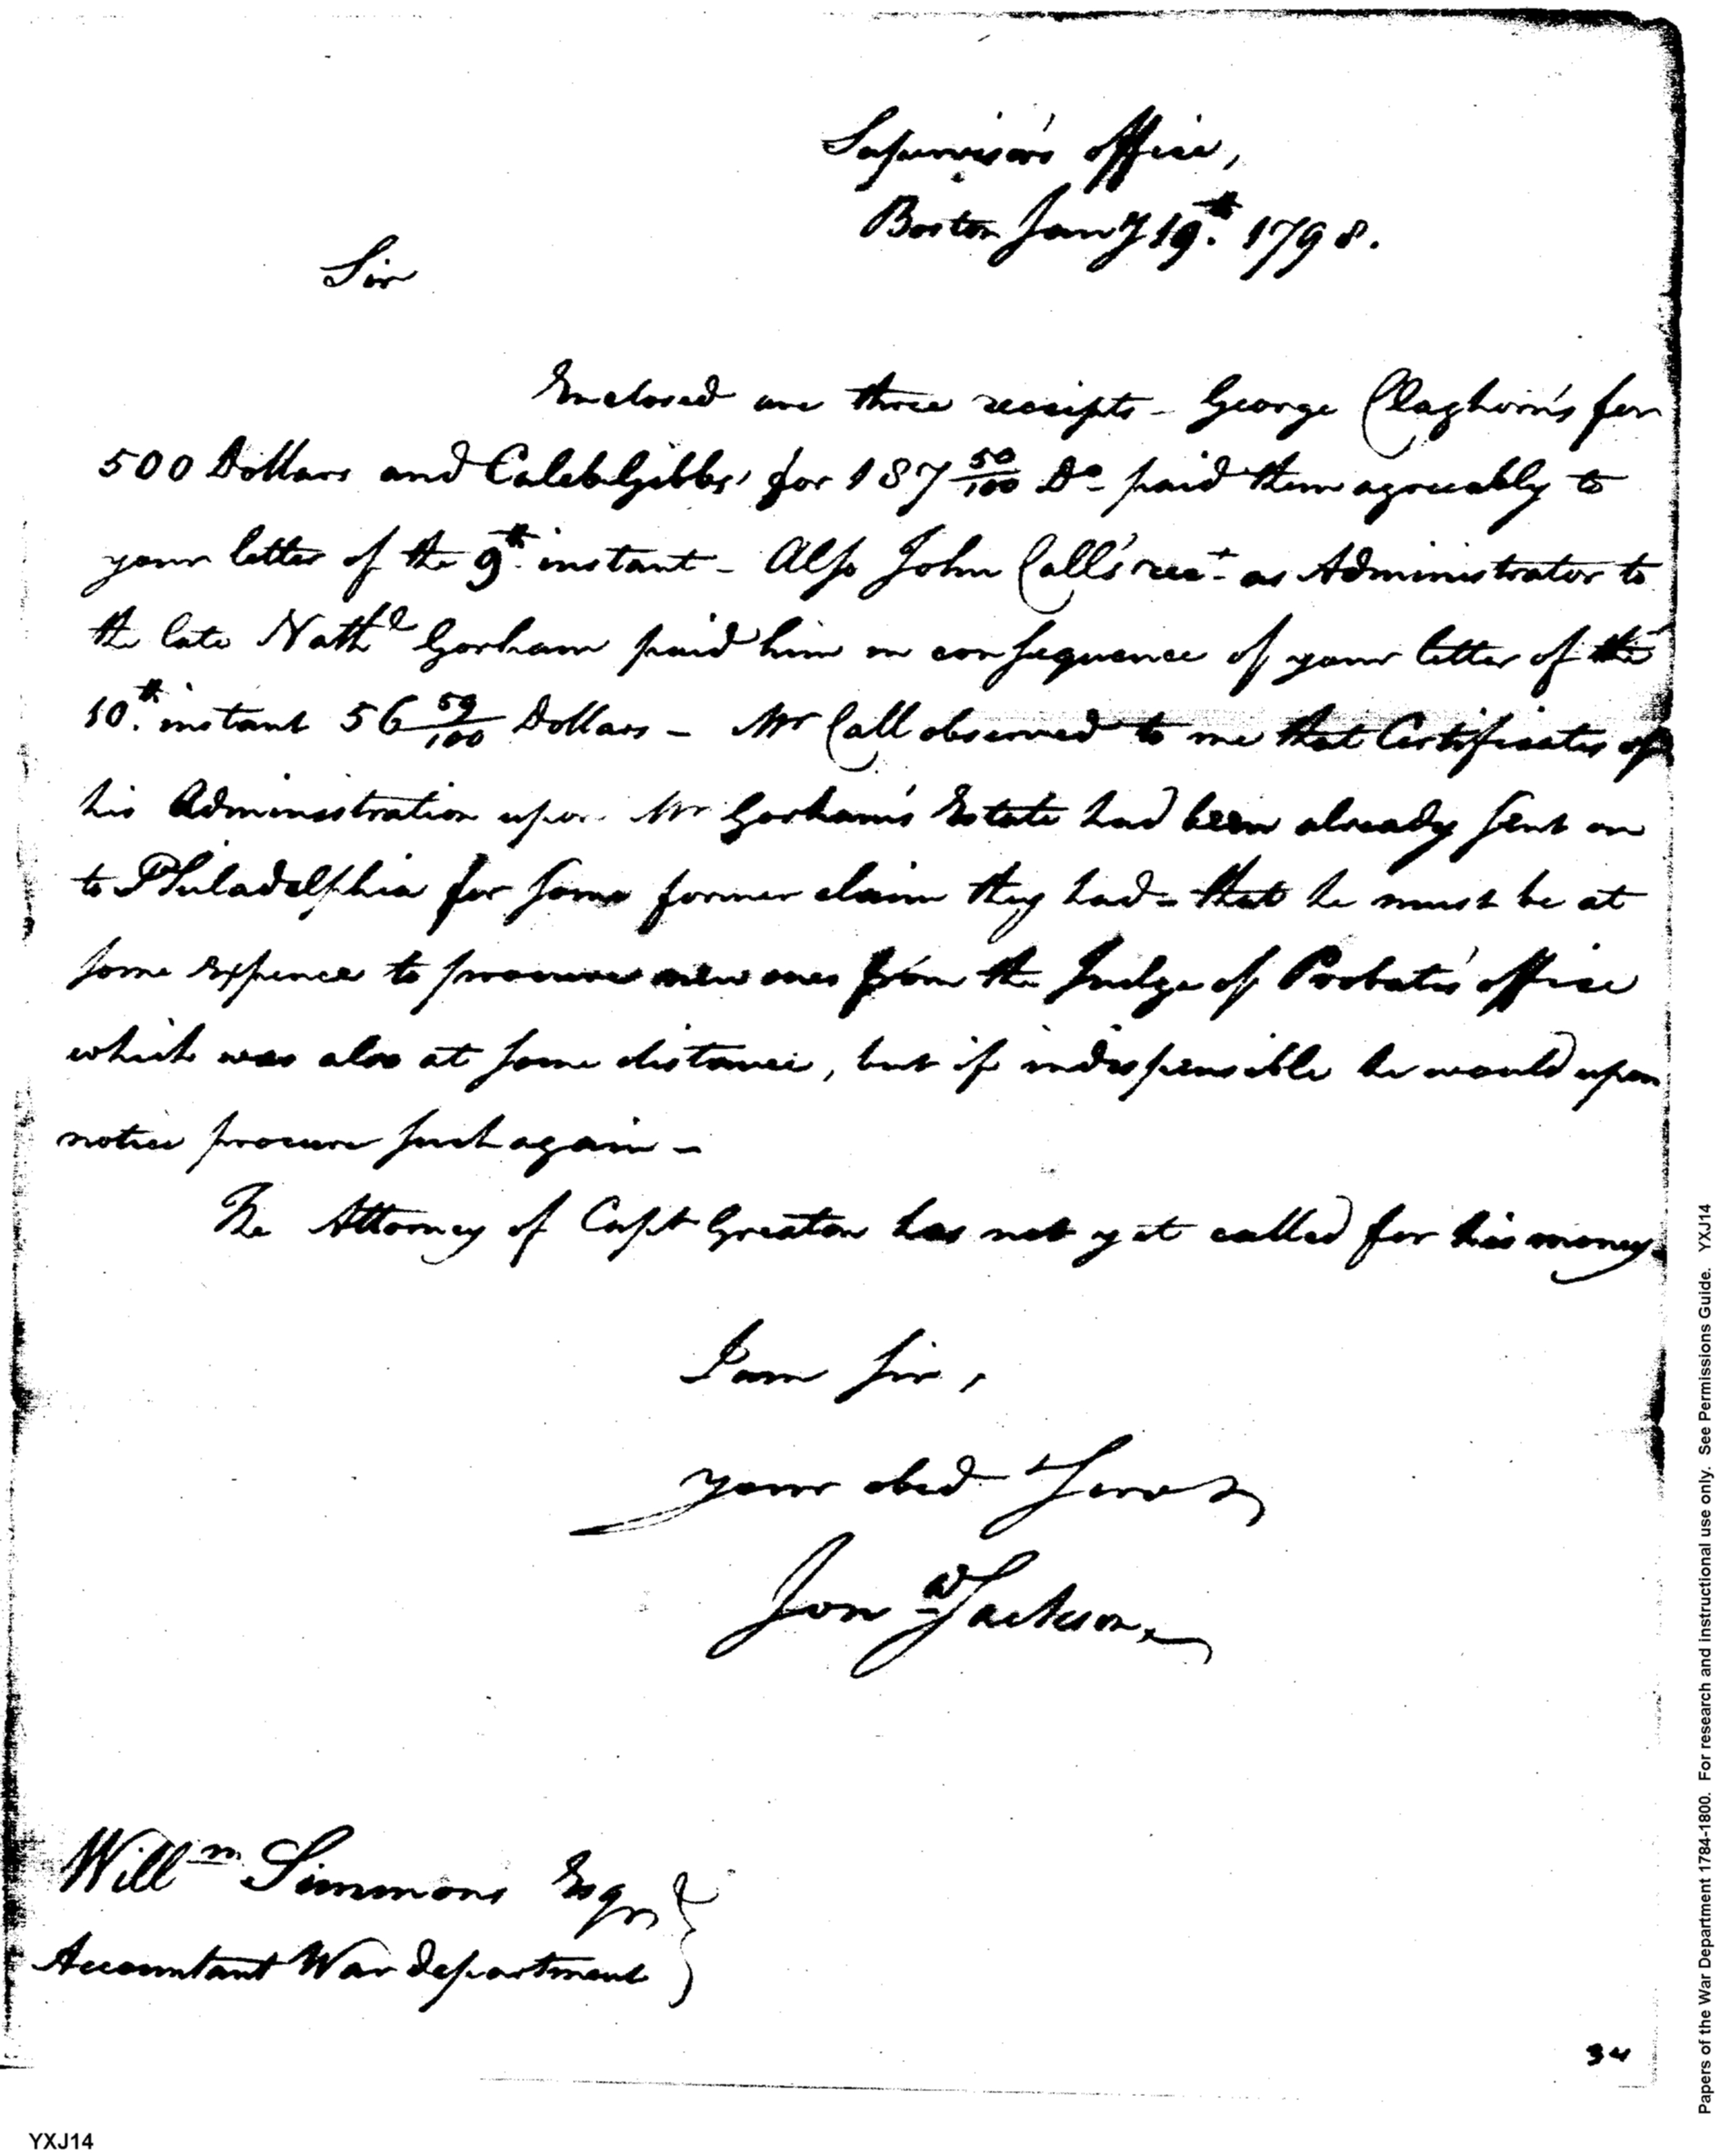 Supervisor's Office,
Boston Jany 19th. 1798.
Sir
Enclosed are three receipts - George Claghorn's for
500 Dollars and Caleb Gibbs' for 187 50/100 Do- paid them agreeably to
your letter of the 9th. instant - Also John Call's rect. as Administrator to
the late Nathl Gorham paid him in consequence of your letter of the
10th. instant 56 59/100 Dollars - Mr Call observed to me that Certificates of
his Administration upon Mr Gorham's Estate had been already sent on
to Philadelphia for some former claim they had - that he must be at
some expence to procure new ones from the Judge of Probate's office
which was also at some distance, but if indispensible he would upon
notice procure such again -
The Attorney of Capt Greaton has not yet called for his money.
I am Sir,
your obed Servt
Jonª Jackson.
Willm Simmons Esqr
Accountant War department
34
YXJ14
Papers of the War Department 1784-1800. For research and instructional use only. See Permissions Guide. YXJ14